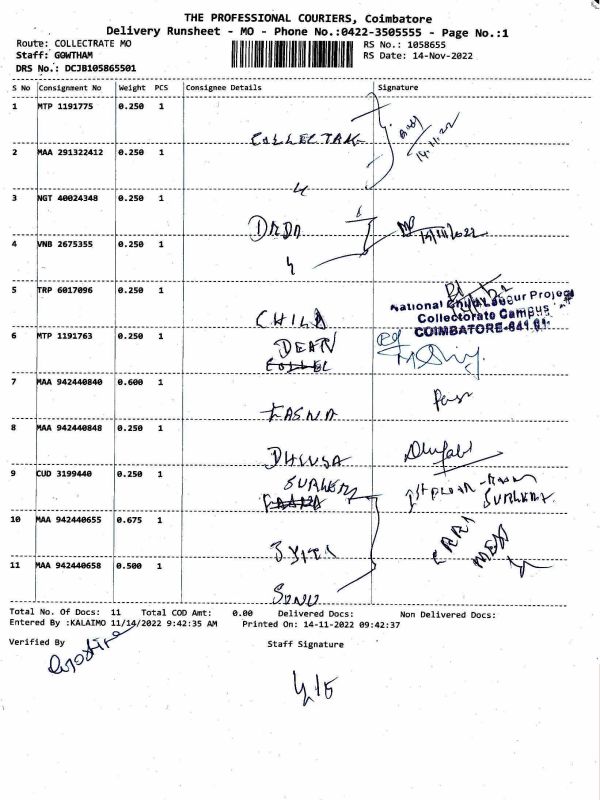 THE PROFESSIONAL COURIERS, Coimbatore
Delivery Runsheet - MO - Phone No.:0422-3505555 - Page No.:1
Route: COLLECTRATE MO
RS No.: 1058655
Staff: GOWTHAM
RS Date: 14-Nov-2022
DRS No.: DCJB105865501
S No Consignment No Weight PCS Consignee Details Signature
1 MTP 1191775 0.250 1
COLLECTRAK
14.11.22
2 MAA 291322412 0.250 1
3 NGT 40024348 0.250 1
DRDA
4 VNB 2675355 0.250 1
5 TRP 6017096 0.250 1
National Child Labour Project
Collectorate Campus
COIMBATORE-641 01
CHILD
6 MTP 1191763 0.250 1
DEAN
7 MAA 942440840 0.600 1
8 MAA 942440848 0.250 1
9 CUD 3199440 0.250 1
SURGERY
10 MAA 942440655 0.675 1
11 MAA 942440658 0.500 1
SONU
Total No. Of Docs: 11 Total COD Amt: 0.00 Delivered Docs: Non Delivered Docs:
Entered By :KALAIMO 11/14/2022 9:42:35 AM Printed On: 14-11-2022 09:42:37
Verified By
Staff Signature